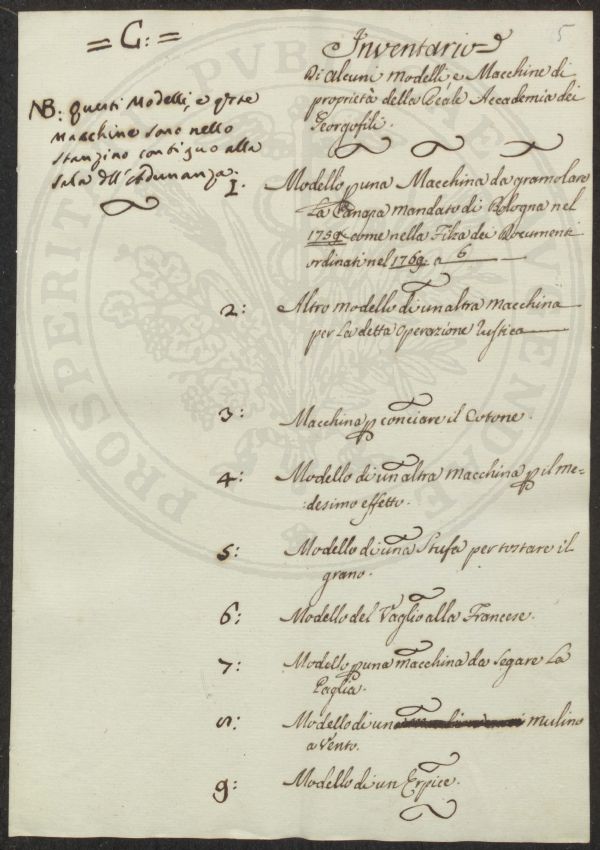 = C: =
5
NB: questi Modelli, e q.ste
Macchine sono nello
stanzino contiguo alla
sala dell'Adunanza:
Inventario
Di alcuni modelli e Macchine di
proprietà della Reale Accademia dei
Georgofili.
1. Modello p una Macchina da gramolare
La Canapa mandato di Bologna nel
1759 come nella Filza dei Documenti
ordinati nel 1769: a 6
2: Altro modello di un altra macchina
per la detta operazione rustica
3: Macchina p conciare il Cotone.
4: Modello di un altra macchina p il me-
:desimo effetto.
5: Modello di una Stufa per tostare il
grano.
6: Modello del Vaglio alla Francese.
7: Modello p una macchina da segare La
Paglia.
8: Modello di un mulino
a Vento.
9: Modello di un Erpice.
PROSPERITATI PUBLICAE AUGENDAE